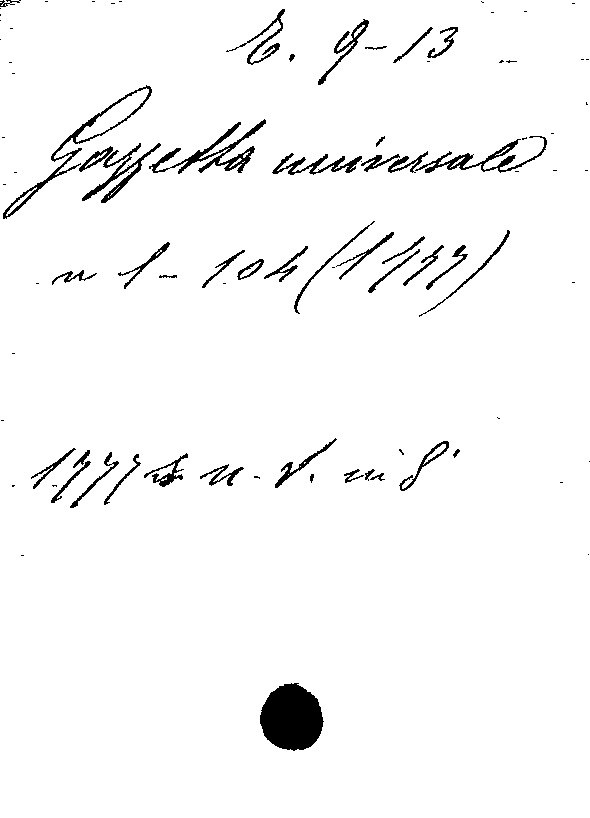 E. 9-13
Gazzetta universale
n 1-104 (1777)
1777 n. v. in 8°